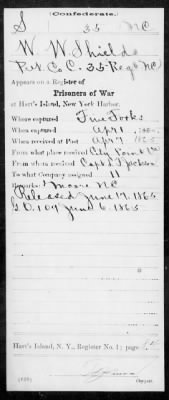 Confederate.
S 35 NC
W W Shields
Pvt Co C. 35 Regt NC
Appears on a Register of
Prisoners of War
at Hart's Island, New York Harbor.
Where captured Five Forks
When captured Apr 1, 1865.
When received at Post Apr 7, 1865
From what place received City Point Va
From whom received Capt
To what Company assigned 11
Remarks: Moore NC
Released June 17, 1865
G.O. 109 June 6, 1865
Hart's Island, N. Y., Register No. 1; page
Copyist.